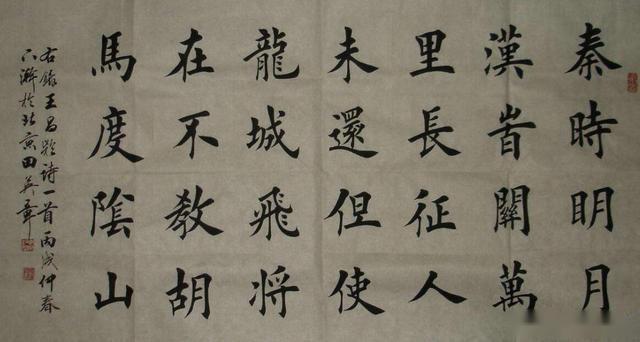 秦時眀月
漢旹關萬
里長征人
未還但使
龍城飛將
在不教胡
馬度陰山
右錄王昌齡詩一首丙戌仲春
下澣於北京田英章